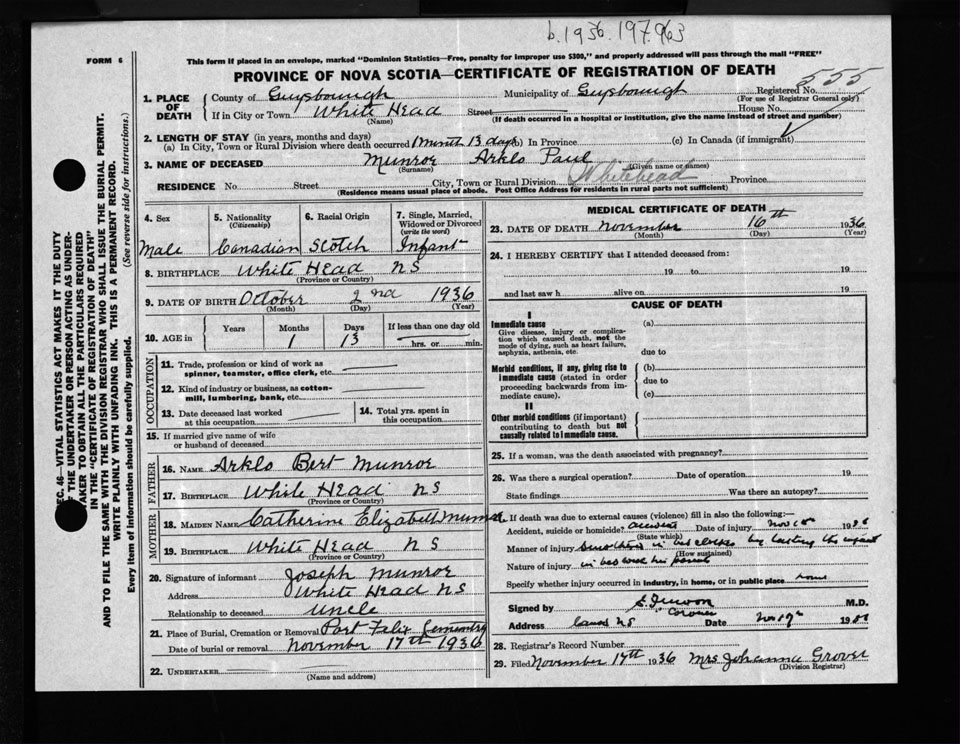 b.1936.197.963
FORM 6
This form if placed in an envelope, marked "Dominion Statistics—Free, penalty for improper use $300," and properly addressed will pass through the mail "FREE"
PROVINCE OF NOVA SCOTIA—CERTIFICATE OF REGISTRATION OF DEATH
555
1. PLACE OF DEATH
County of Guysborough Municipality of Guysborough Registered No.
(For use of Registrar General only)
If in City or Town White Head Street House No.
(Name) (If death occurred in a hospital or institution, give the name instead of street and number)
2. LENGTH OF STAY (in years, months and days)
(a) In City, Town or Rural Division where death occurred 1 Month 13 days (b) In Province (c) In Canada (if immigrant)
3. NAME OF DECEASED Munroe Arklo Paul
(Surname) (Given name or names)
RESIDENCE No Street City, Town or Rural Division Whitehead Province
(Residence means usual place of abode. Post Office Address for residents in rural parts not sufficient)
4. Sex Male
5. Nationality (Citizenship) Canadian
6. Racial Origin Scotch
7. Single, Married, Widowed or Divorced (write the word) Infant
8. BIRTHPLACE White Head NS
(Province or Country)
9. DATE OF BIRTH October 2nd 1936
(Month) (Day) (Year)
10. AGE in Years Months Days If less than one day old
1 13 hrs. or min.
OCCUPATION
11. Trade, profession or kind of work as
spinner, teamster, office clerk, etc.
12. Kind of industry or business, as cotton-
mill, lumbering, bank, etc.
13. Date deceased last worked
at this occupation
14. Total yrs. spent in
this occupation
15. If married give name of wife
or husband of deceased
FATHER
16. NAME Arklo Bert Munroe
17. BIRTHPLACE White Head NS
(Province or Country)
MOTHER
18. MAIDEN NAME Catherine Elizabeth
19. BIRTHPLACE White Head NS
(Province or Country)
20. Signature of informant Joseph Munroe
Address White Head NS
Relationship to deceased Uncle
21. Place of Burial, Cremation or Removal Port Felix Cementry
Date of burial or removal November 17th 1936
22. UNDERTAKER
(Name and address)
MEDICAL CERTIFICATE OF DEATH
23. DATE OF DEATH November 16th 1936
(Month) (Day) (Year)
24. I HEREBY CERTIFY that I attended deceased from:
19 to 19
and last saw h alive on 19
CAUSE OF DEATH
I
Immediate cause
Give disease, injury or complica-
tion which caused death, not the
mode of dying, such as heart failure,
asphyxia, asthenia, etc.
(a)
due to
Morbid conditions, if any, giving rise to
immediate cause (stated in order
proceeding backwards from im-
mediate cause).
(b)
due to
(c)
II
Other morbid conditions (if important)
contributing to death but not
causally related to immediate cause.
25. If a woman, was the death associated with pregnancy?
26. Was there a surgical operation? Date of operation 19
State findings Was there an autopsy?
If death was due to external causes (violence) fill in also the following:—
Accident, suicide or homicide? accident Date of injury Nov 1936
(State which)
Manner of injury in bed clothes by the infant
(How sustained)
Nature of injury in bed his parents
Specify whether injury occurred in industry, in home, or in public place home
Signed by M.D.
Coroner
Address Canso NS Date Nov 19
28. Registrar's Record Number
29. Filed November 17th 1936 Mrs Johanna Grover
(Division Registrar)
SEC. 46— VITAL STATISTICS ACT MAKES IT THE DUTY
OF THE UNDERTAKER OR PERSON ACTING AS UNDER-
TAKER TO OBTAIN ALL THE PARTICULARS REQUIRED
IN THE "CERTIFICATE OF REGISTRATION OF DEATH"
AND TO FILE THE SAME WITH THE DIVISION REGISTRAR WHO SHALL ISSUE THE BURIAL PERMIT.
WRITE PLAINLY WITH UNFADING INK. THIS IS A PERMANENT RECORD.
Every item of information should be carefully supplied. (See reverse side for instructions.)